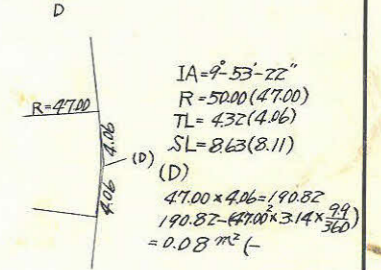 D
R=47.00
4.06
(D)
4.06
IA=9°-53'-22"
R=50.00(47.00)
TL=4.32(4.06)
SL=8.63(8.11)
(D)
47.00×4.06=190.82
190.82-(47.00²×3.14×9.9/360)
=0.08m²(-